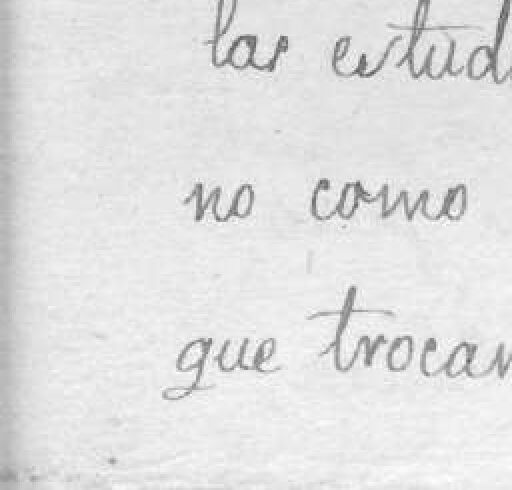 las estud
no como
que trocan